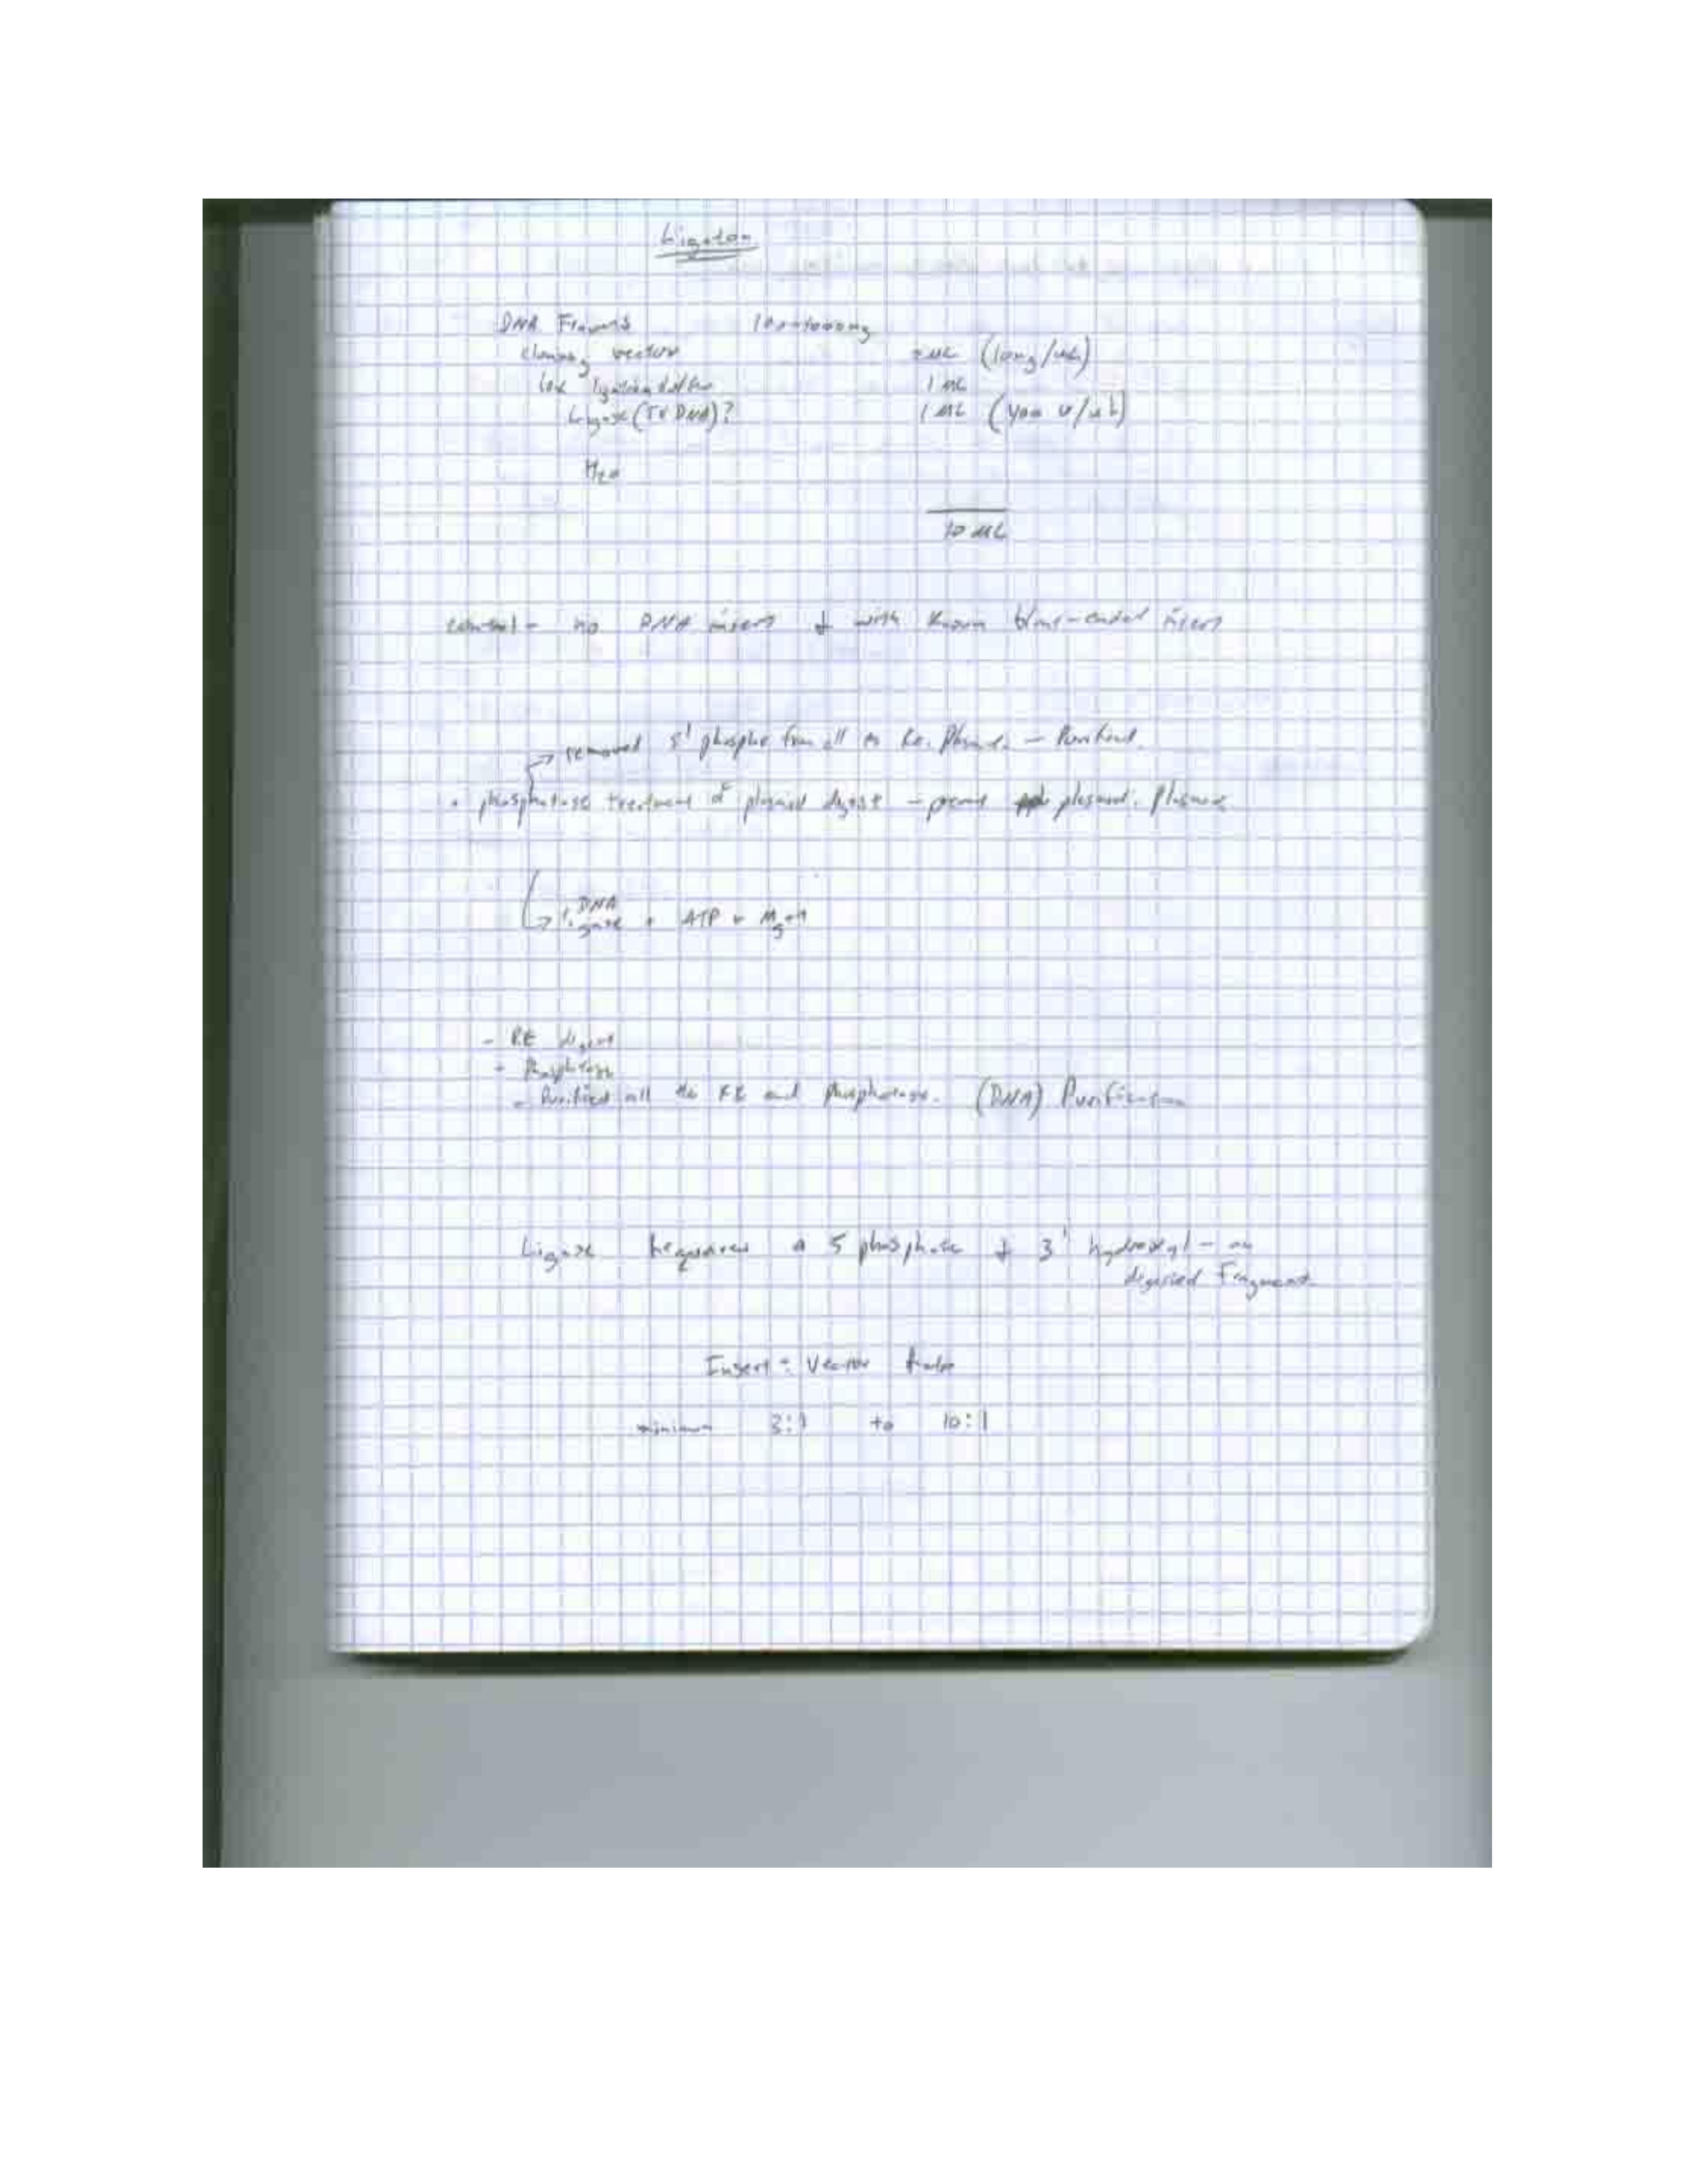 Ligation
DNA Fragments 100-1000ng
cloning vector uL (10ng/uL)
10x ligation buffer 1 uL
Ligase (T4 DNA)? 1 uL (400 U/uL)
H2O
10 uL
control - no DNA insert + with known blunt-ended insert
removed 5' phosphe from all - Purified.
phosphatase treatment of plasmid digest - plasmid. Plasmid
DNA
ligase + ATP + Mg++
- RE digest
- Phosphatase
- Purified all the RE and phosphatase. (DNA) Purification
Ligase Requires a 5 phosphate + 3' hydroxyl - on
digested Fragment
Insert : Vector Ratio
minimum 3:1 to 10:1